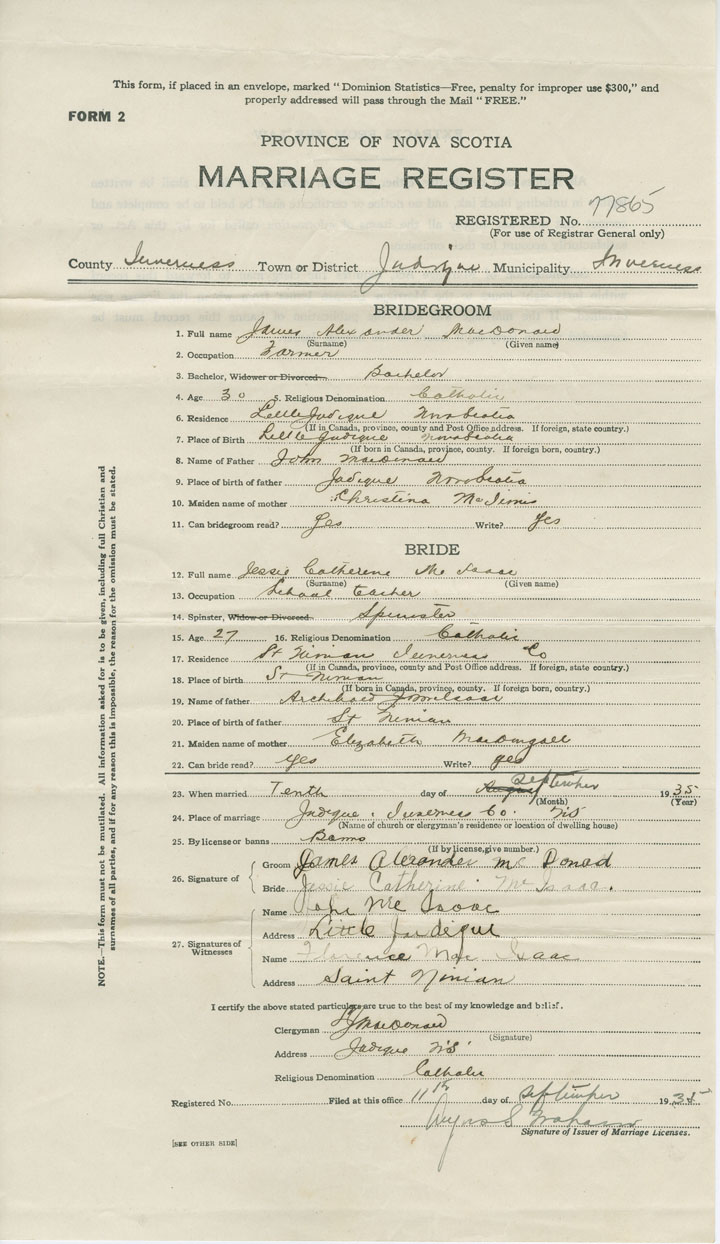 This form, if placed in an envelope, marked " Dominion Statistics—Free, penalty for improper use $300," and
properly addressed will pass through the Mail " FREE."
FORM 2
PROVINCE OF NOVA SCOTIA
MARRIAGE REGISTER
REGISTERED No. 77865
(For use of Registrar General only)
County Inverness Town or District Judique Municipality Inverness
BRIDEGROOM
1. Full name James Alexander MacDonald
(Surname) (Given name)
2. Occupation Farmer
3. Bachelor, Widower or Divorced Bachelor
4. Age 30 5. Religious Denomination Catholic
6. Residence Little Judique Nova Scotia
(If in Canada, province, county and Post Office address. If foreign, state country.)
7. Place of Birth Little Judique Nova Scotia
(If born in Canada, province, county. If foreign born, country.)
8. Name of Father John MacDonald
9. Place of birth of father Judique Nova Scotia
10. Maiden name of mother Christina McInnis
11. Can bridegroom read? Yes Write? Yes
BRIDE
12. Full name Jessie Catherine Mc Isaac
(Surname) (Given name)
13. Occupation School teacher
14. Spinster, Widow or Divorced Spinster
15. Age 27 16. Religious Denomination Catholic
17. Residence St Ninian Inverness Co
(If in Canada, province, county and Post Office address. If foreign, state country.)
18. Place of birth St Ninian
(If born in Canada, province, county. If foreign born, country.)
19. Name of father Archibald J McIsaac
20. Place of birth of father St Ninian
21. Maiden name of mother Elizabeth MacDougall
22. Can bride read? Yes Write? yes
23. When married Tenth day of August September 1935
(Month) (Year)
24. Place of marriage Judique Inverness Co. NS
(Name of church or clergyman's residence or location of dwelling house)
25. By license or banns Banns
(If by license, give number.)
26. Signature of Groom James Alexander Mc Donad
Bride Jessie Catherine Mc Isaac.
27. Signatures of Witnesses
Name John Mc Isaac
Address Little Judique
Name Florence Mac Isaac
Address Saint Ninian
I certify the above stated particulars are true to the best of my knowledge and belief.
Clergyman MacDonald
(Signature)
Address Judique NS
Religious Denomination Catholic
Registered No. Filed at this office 11th day of September 1935
Angus S Graham
Signature of Issuer of Marriage Licenses.
[SEE OTHER SIDE]
NOTE.—This form must not be mutilated. All information asked for is to be given, including full Christian and
surnames of all parties, and if for any reason this is impossible, the reason for the omission must be stated.